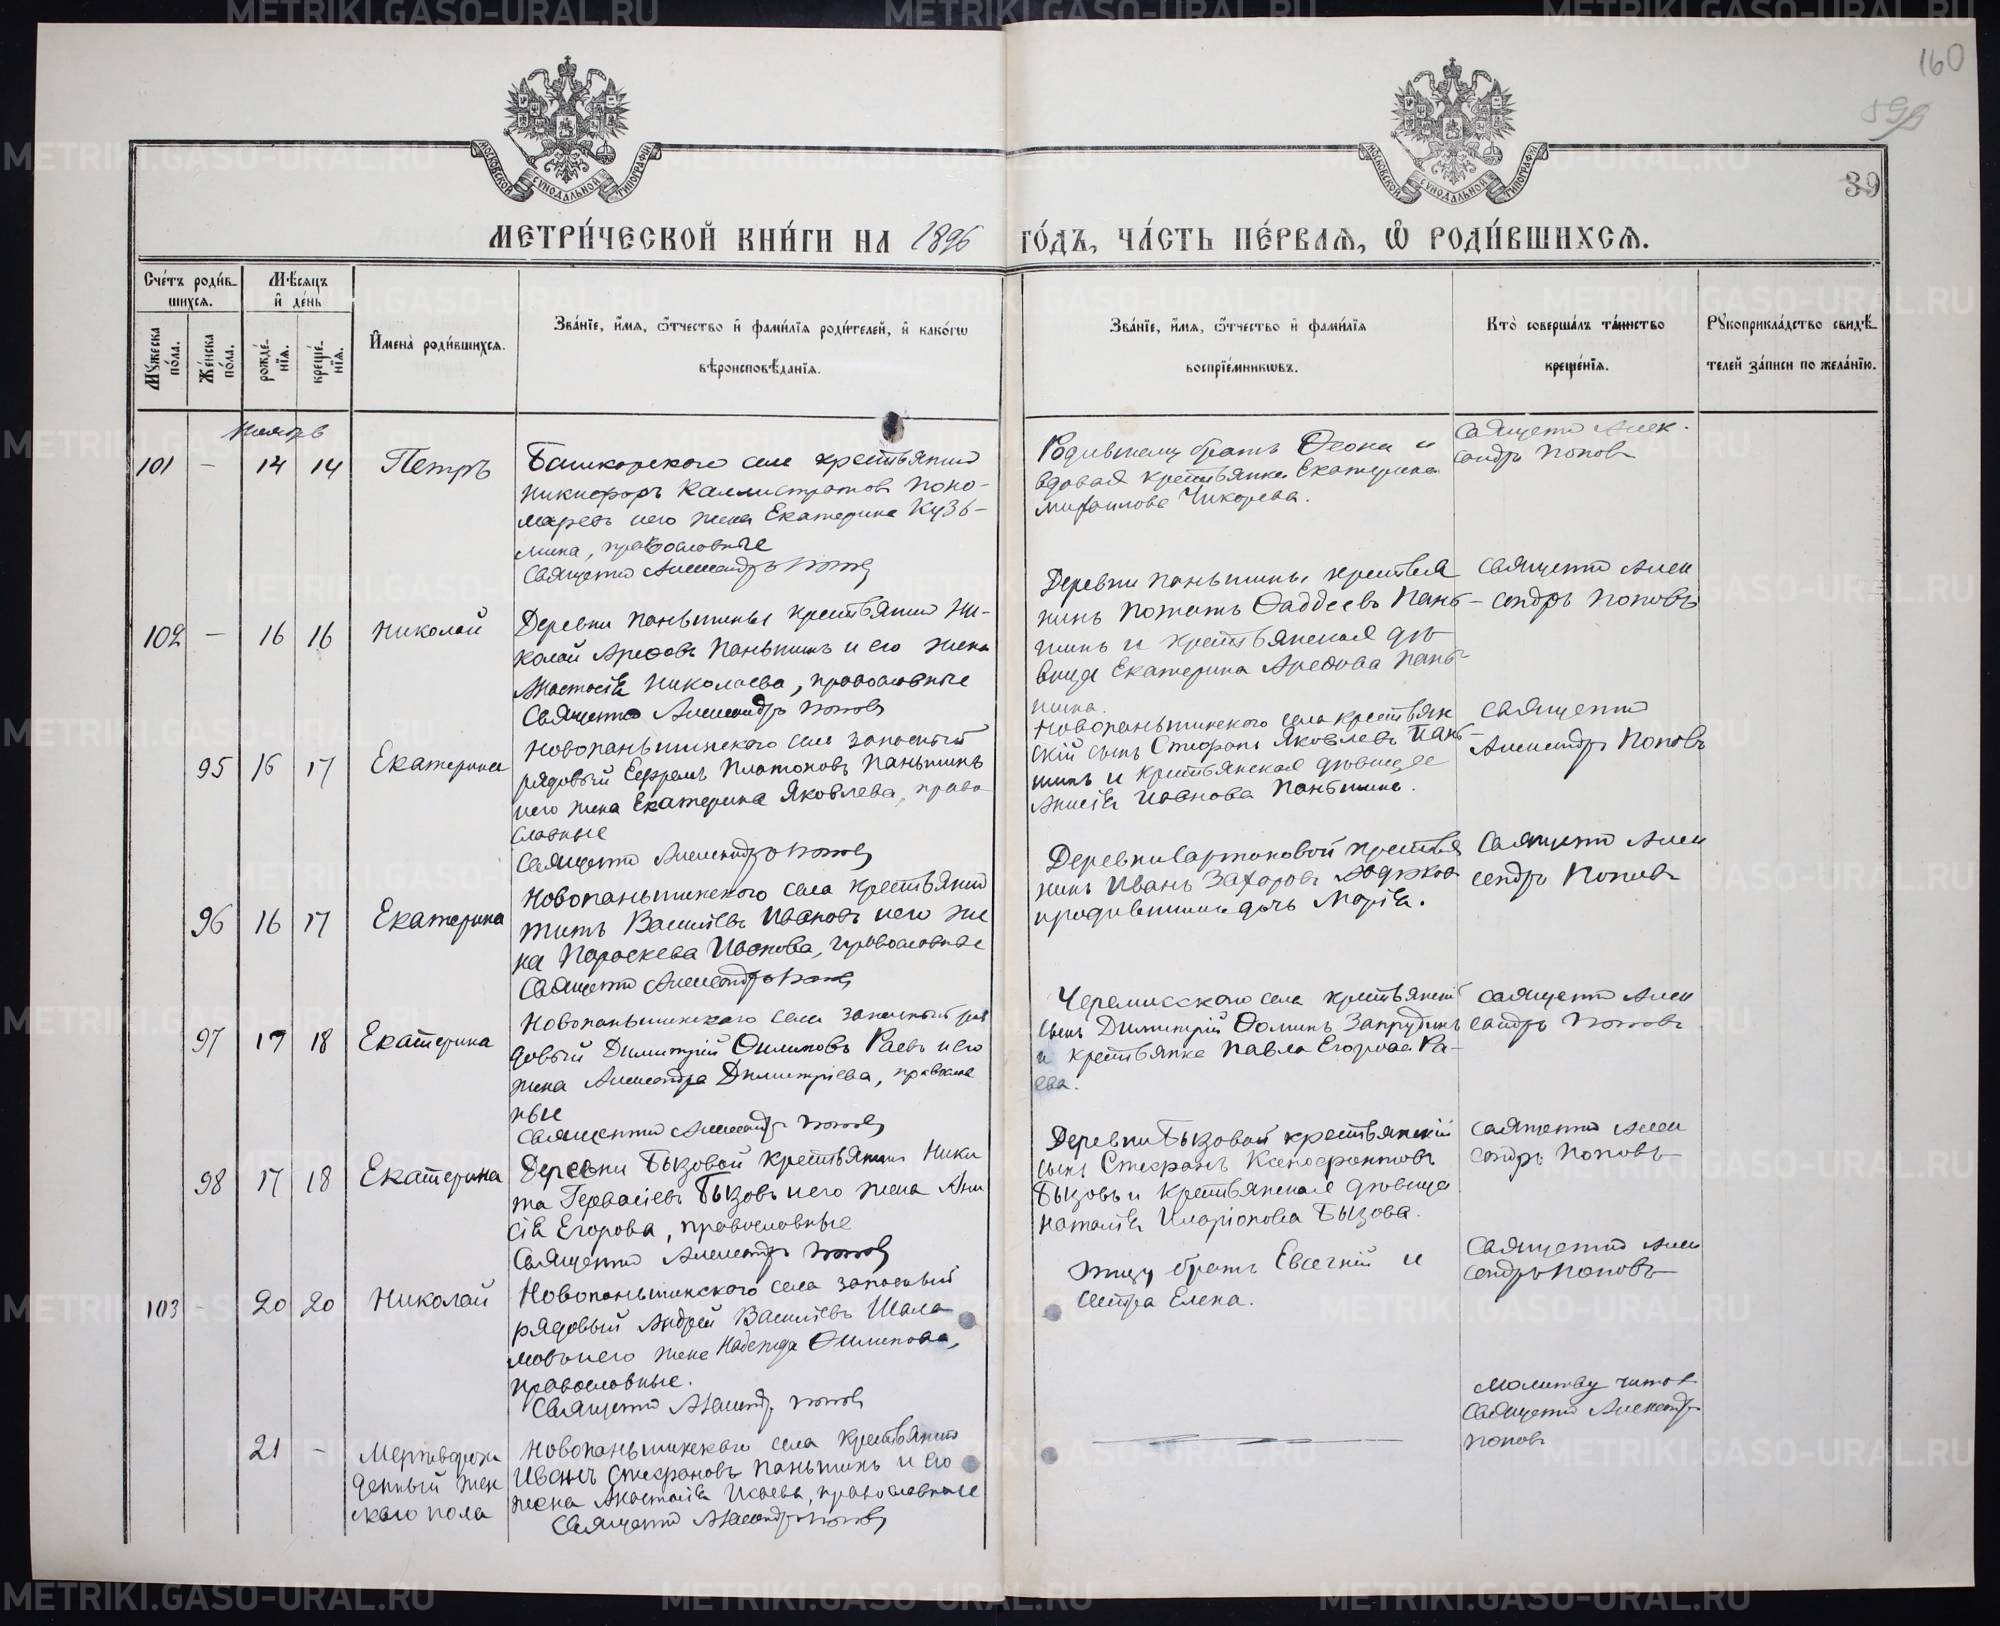 160
599
39
МОСКОВСКОЙ СѴНОДАЛЬНОЙ ТИПОГРАФІИ
МОСКОВСКОЙ СѴНОДАЛЬНОЙ ТИПОГРАФІИ
МЕТРИ́ЧЕСКОЙ КНИ́ГИ НА 1896 ГО́ДЪ, ЧА́СТЬ ПЕ́РВАѦ, Ѡ҆ РОДИ́ВШИХСѦ.
Сче́тъ роди́в-
шихсѧ.
Мꙋ́жеска по́ла.
Же́нска по́ла.
Мѣ́сѧцъ
и҆ де́нь
рожде́-
нїѧ.
креще́-
нїѧ.
И҆мена̀ роди́вшихсѧ.
Зва́нїе, и҆́мѧ, ѻ҆́тчество и҆ фами́лїѧ роди́телей, и҆ како́гѡ
вѣроисповѣ́данїѧ.
Зва́нїе, и҆́мѧ, ѻ҆́тчество и҆ фами́лїѧ
воспрїе́мникѡвъ.
Кто̀ соверша́лъ та́инство
креще́нїѧ.
Рꙋкоприкла́дство свидѣ́-
телей за́писи по жела́нїю.
Ноябрь
101 – 14 14 Петръ
Башкарского села крестьянинъ
Никифоръ Каллистратовъ Поно-
маревъ и его жена Екатерина Кузь-
мина, православные
Священникъ Александръ Поповъ
Родившему братъ Ѳеона и
вдовая крестьянка Екатерина
Михаилова Чикорева.
Священникъ Алек-
сандръ Поповъ
102 – 16 16 Николай
Деревни Паньшины крестьянинъ Ни-
колай Арефовъ Паньшинъ и его жена
Анастасія Николаева, православные
Священникъ Александръ Поповъ
Деревни Паньшины крестья
нинъ Потапъ Ѳаддеевъ Пань-
шинъ и крестьянская дѣ
вица Екатерина Арефова Пань-
шина.
Священникъ Алек
сандръ Поповъ
95 16 17 Екатерина
Новопаньшинского села запасный
рядовый Ефремъ Платоновъ Паньшинъ
и его жена Екатерина Яковлева, право
славные
Священникъ Александръ Поповъ
Новопаньшинского села крестьян
скій сынъ Стефанъ Яковлевъ Пань-
шинъ и крестьянская дѣвица
Анисія Иванова Паньшина.
Священникъ
Александръ Поповъ
96 16 17 Екатерина
Новопаньшинского села крестьянинъ
Титъ Василіевъ Ивановъ и его же
на Параскева Иванова, православные
Священникъ Александръ Поповъ
Деревни Сартаковой крестья
нинъ Иванъ Захаровъ
и родившимъ дочь Марія.
Священникъ Алек
сандръ Поповъ
97 17 18 Екатерина
Новопаньшинского села запасный ря
довый Димитрій Филиповъ Раевъ и его
жена Александра Димитріева, правосла
вные
Священникъ Александръ Поповъ
Черемисского села крестьянскій
сынъ Димитрій Ѳоминъ Запрудинъ
и крестьянка Павла Егорова Ра-
ева.
Священникъ Алек
сандръ Поповъ
98 17 18 Екатерина
Деревни Бызовой крестьянинъ Ники
та Гервасіевъ Бызовъ и его жена Ани
сія Егорова, православные
Священникъ Александръ Поповъ
Деревни Бызовой крестьянскій
сынъ Стефанъ Ксенофонтовъ
Бызовъ и крестьянская дѣвица
Наталія Иларіонова Бызова.
Священникъ Алек
сандръ Поповъ
103 – 20 20 Николай
Новопаньшинского села запасный
рядовый Андрей Василіевъ Шала
мовъ и его жена Надежда Филипова,
православные.
Священникъ Александръ Поповъ
Отцу братъ Евгеній и
сестра Елена.
Священникъ Алек
сандръ Поповъ
21 – Мертворож
денный жен
скаго пола
Новопаньшинскаго села крестьянинъ
Иванъ Стефановъ Паньшинъ и его
жена Анастасія Исаева, православные
Священникъ Александръ Поповъ
Молитву читалъ
Священникъ Александръ
Поповъ
METRIKI.GASO-URAL.RU